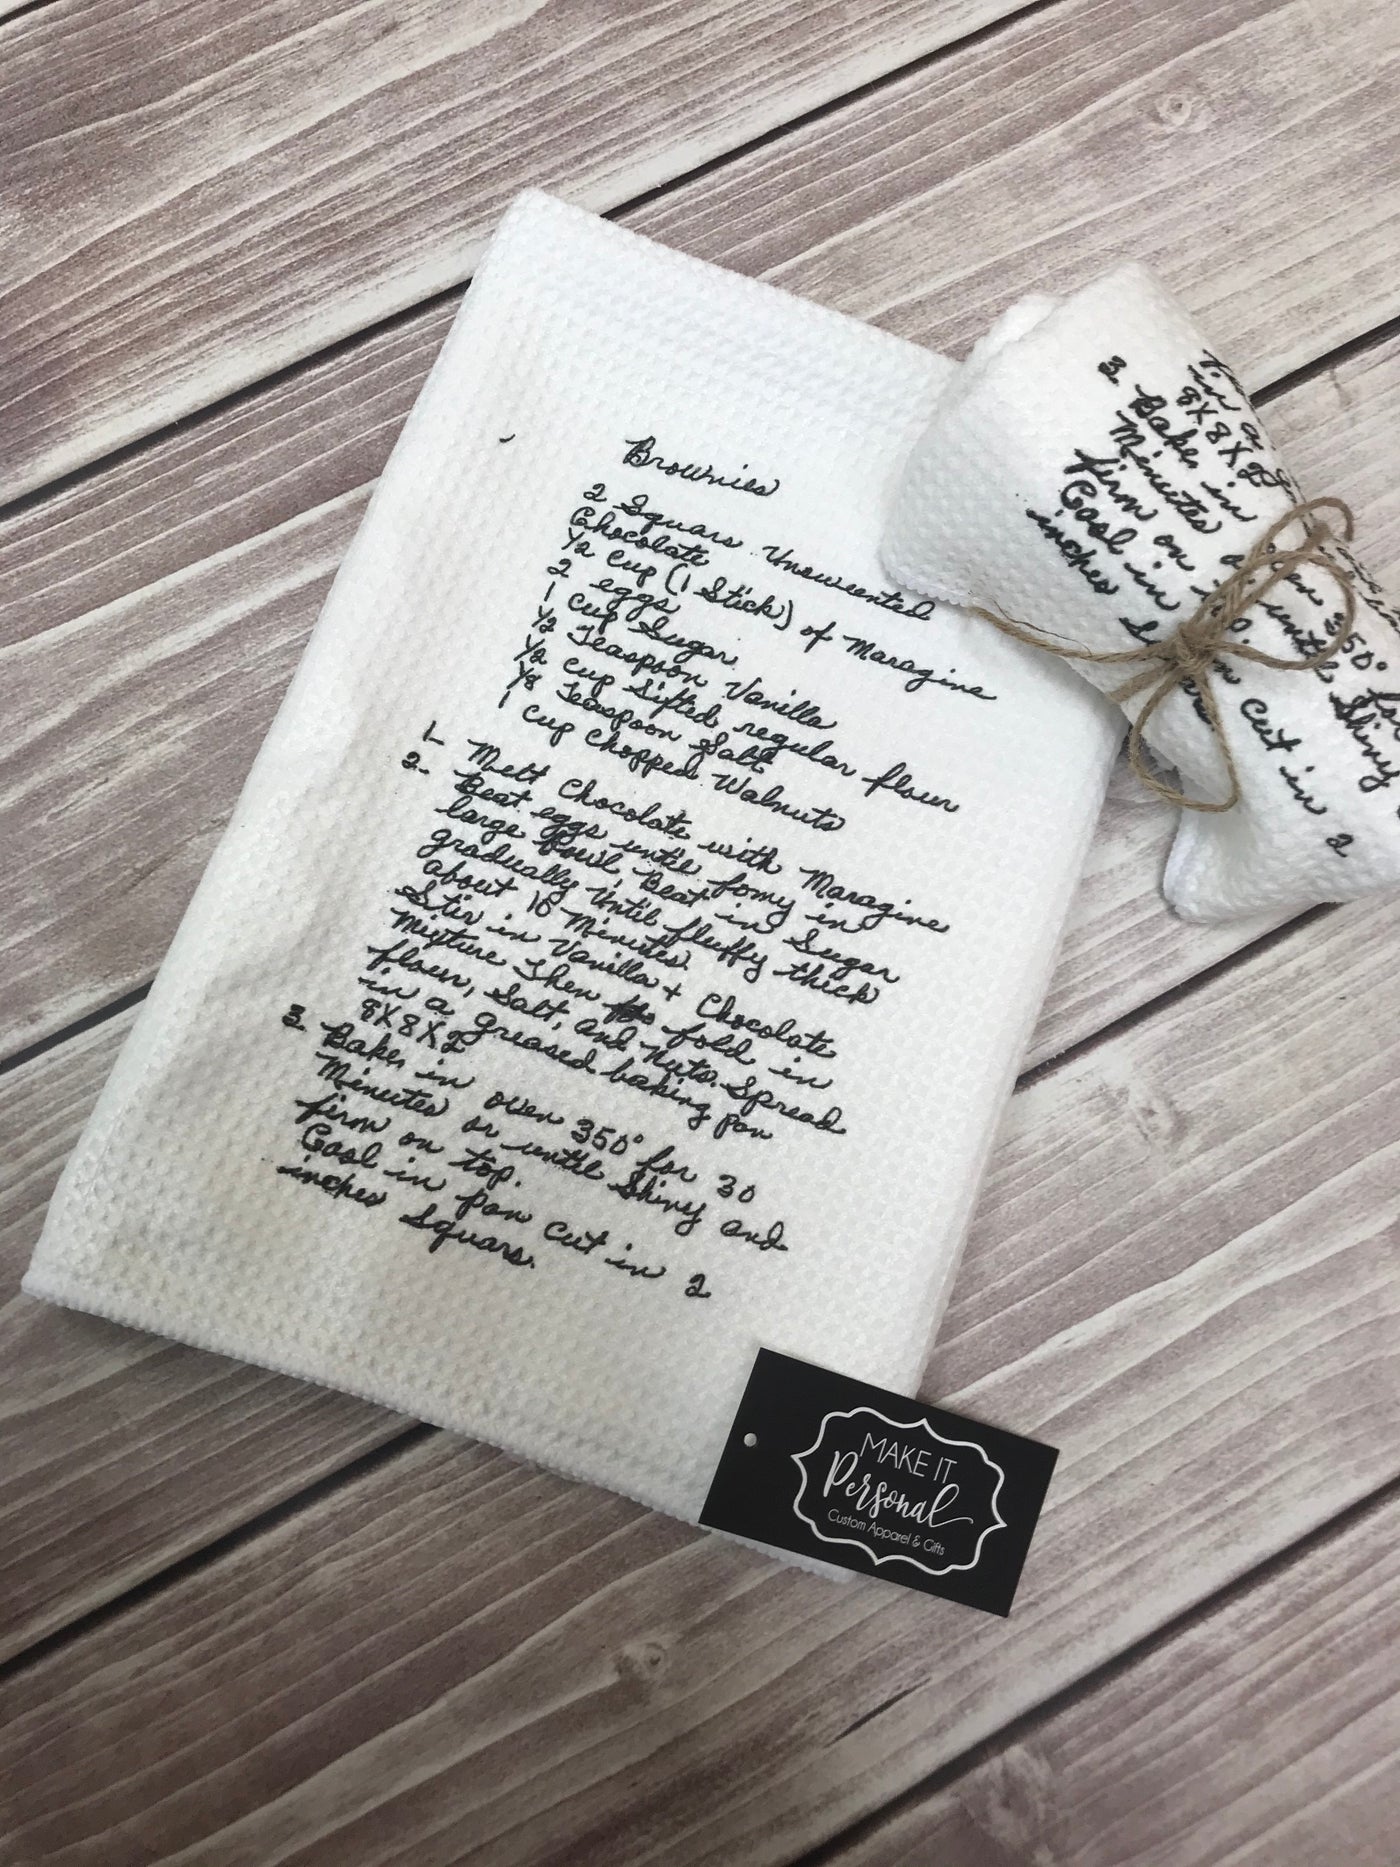 Brownies
2 Squars Unsweented
Chocolate
1/2 Cup (1 Stick) of Maragine
2 eggs
1 Cup Sugar
1/2 Teaspoon Vanilla
1/2 Cup Sifted regular flour
1/8 Teaspoon Salt
1 Cup Chopped Walnuts
1- Melt Chocolate with Maragine
2- Beat eggs until fomy in
large Bowl, Beat in Sugar
gradually until fluffy thick
about 10 Minutes.
Stir in Vanilla + Chocolate
Mixture Then fold in
flour, Salt, and Nuts. Spread
in a greased baking pan
8X8X2
3. Bake, in oven 350° for 30
Minutes or until Shiny and
firm on top.
Cool in pan cut in 2
inches Squars.
in a
8X8X2
3. Bake, in
Minutes
firm on
Cool in
inches
350° for
until Shiny
cut in 2
MAKE IT
Personal
Custom Apparel & Gifts